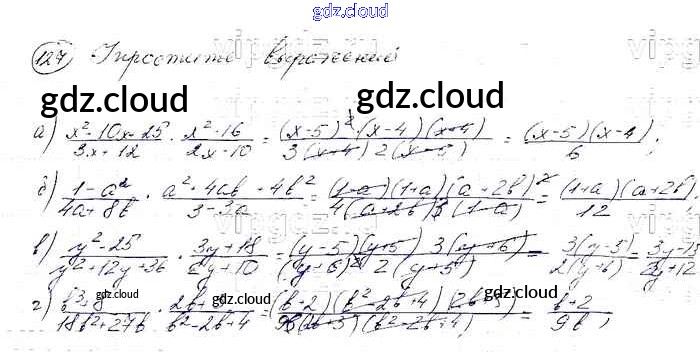 gdz.cloud
127 Упростите выражения
gdz.cloud gdz.cloud
а) x²-10x+25/3x+12 · x²-16/2x-10 = (x-5)²(x-4)(x+4)/3(x+4)2(x-5) = (x-5)(x-4)/6;
б) 1-a²/4a+8b · a²+4ab+4b²/3-3a = (1-a)(1+a)(a+2b)²/4(a+2b)3(1-a) = (1+a)(a+2b)/12;
в) y²-25/y²+12y+36 · 3y+18/2y+10 = (y-5)(y+5) 3(y+6)/(y+6)² 2(y+5) = 3(y-5)/2(y+6) = 3y-15/2y+12
г) b³+8/18b²+27b · 2b+3/b²-2b+4 = (b+2)(b²-2b+4)(2b+3)/9b(2b+3)(b²-2b+4) = b+2/9b;
gdz.cloud gdz.cloud